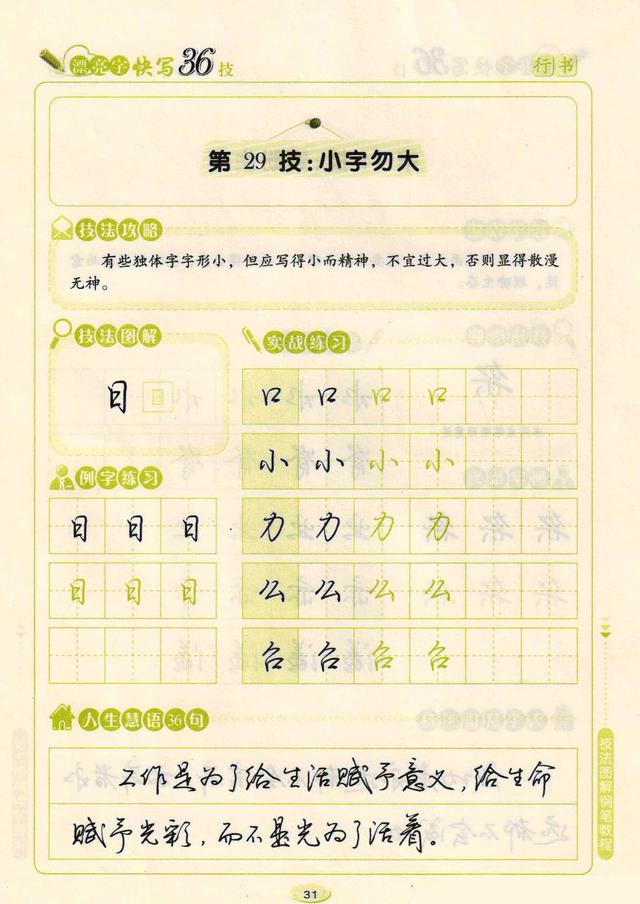 漂亮字快写36技
行书
第 29 技:小字勿大
技法攻略
有些独体字字形小，但应写得小而精神，不宜过大，否则显得散漫
无神。
技法图解
日
实战练习
口 口 口 口
小 小 小 小
例字练习
日 日 日
力 力 力 力
日 日 日
公 公 公 公
台 台 台 台
人生慧语36句
工作是为了给生活赋予意义，给生命
赋予光彩，而不是光为了活着。
技法图解钢笔教程
31